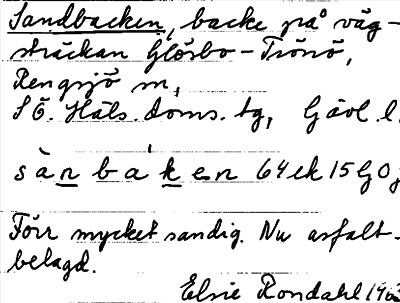 Sandbacken, backe på väg-
sträckan Glösbo - Trönö,
Rengsjö sn,
S Ö. Häls. doms. tg, Gävl. l.
sànbáken 64ek 15G0
Förr mycket sandig. Nu asfalt-
belagd.
Elsie Rondahl